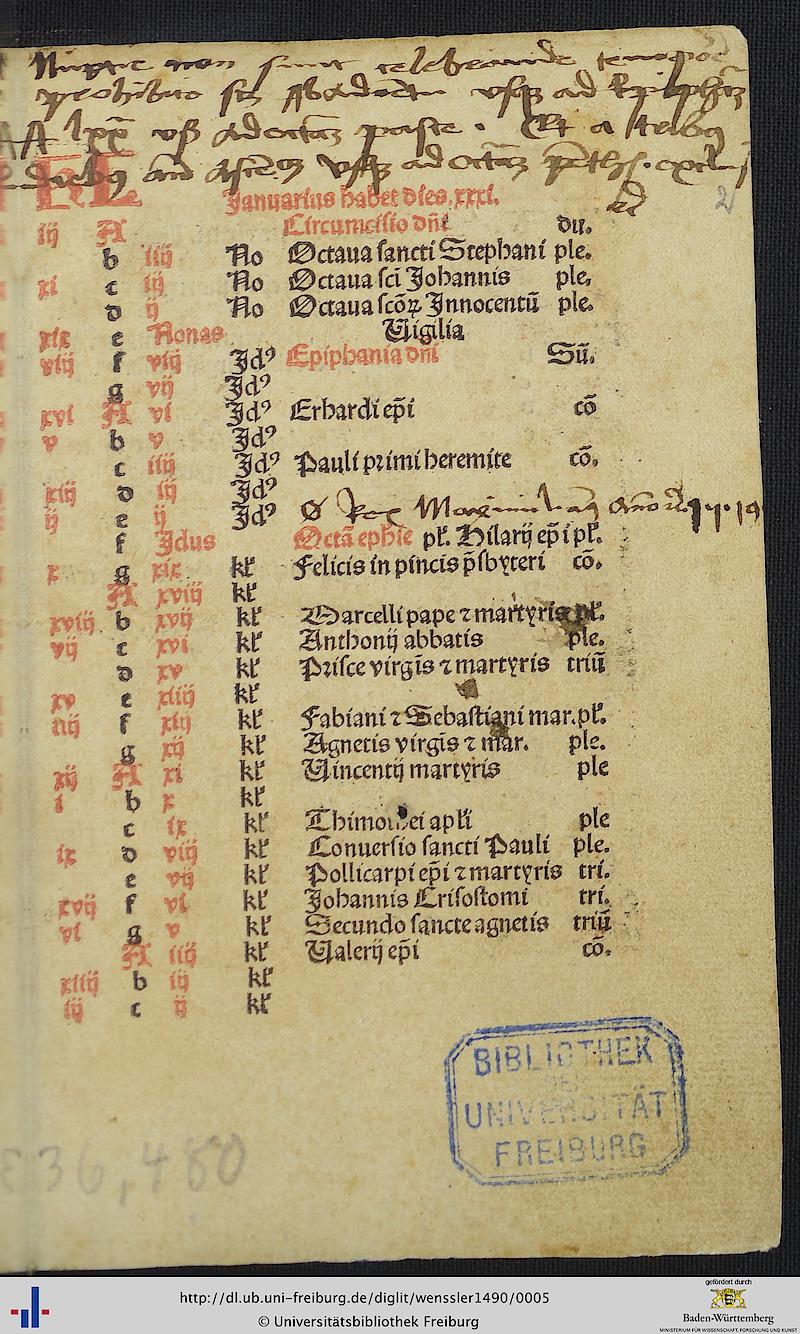 Nuptie non sunt celebrande tempore
prohibito scz Ab aduētu vsqz ad Epiphaniā
A lxx vsqz ad octauā pasce. Et a
diebus an Ascē vsqz ad octā
KL Januarius habet dies.xxxi.
iij A Circumcisio dñi du.
b iiij No Octaua sancti Stephani ple.
xi c iij No Octaua sci Johannis ple.
d ij No Octaua scōꝝ Innocentū ple.
xix e Nonas Uigilia
viij f viij Jdꝰ Epiphania dñi Sū.
g vij Jdꝰ
xvi A vi Jdꝰ Erhardi ep̄i cō
v b v Jdꝰ
c iiij Jdꝰ Pauli primi heremite cō.
xiij d iij Jdꝰ
ij e ij Jdꝰ O Rex Maximilian Año
f Jdus Octā ephie pľ. Hilarij ep̄i pľ.
x g xix kľ Felicis in pincis p̄sbyteri cō.
A xviij kľ
xviij b xvij kľ Marcelli pape ⁊ martyris pľ.
vij c xvi kľ Anthonij abbatis ple.
d xv kľ Prisce virgīs ⁊ martyris triū
xv e xiiij kľ
iiij f xiij kľ Fabiani ⁊ Sebastiani mar.pľ.
g xij kľ Agnetis virgīs ⁊ mar. ple.
xij A xi kľ Uincentij martyris ple
i b x kľ
c ix kľ Thimothei apľi ple
ix d viij kľ Conuersio sancti Pauli ple.
e vij kľ Pollicarpi ep̄i ⁊ martyris tri.
xvij f vi kľ Johannis Crisostomi tri.
vi g v kľ Secundo sancte agnetis triū
A iiij kľ Ualerij ep̄i cō.
xiiij b iij kľ
iij c ij kľ
BIBLIOTHEK
DER
UNIVERSITÄT
FREIBURG
E36,480
http://dl.ub.uni-freiburg.de/diglit/wenssler1490/0005
© Universitätsbibliothek Freiburg
gefördert durch
Baden-Württemberg
MINISTERIUM FÜR WISSENSCHAFT, FORSCHUNG UND KUNST